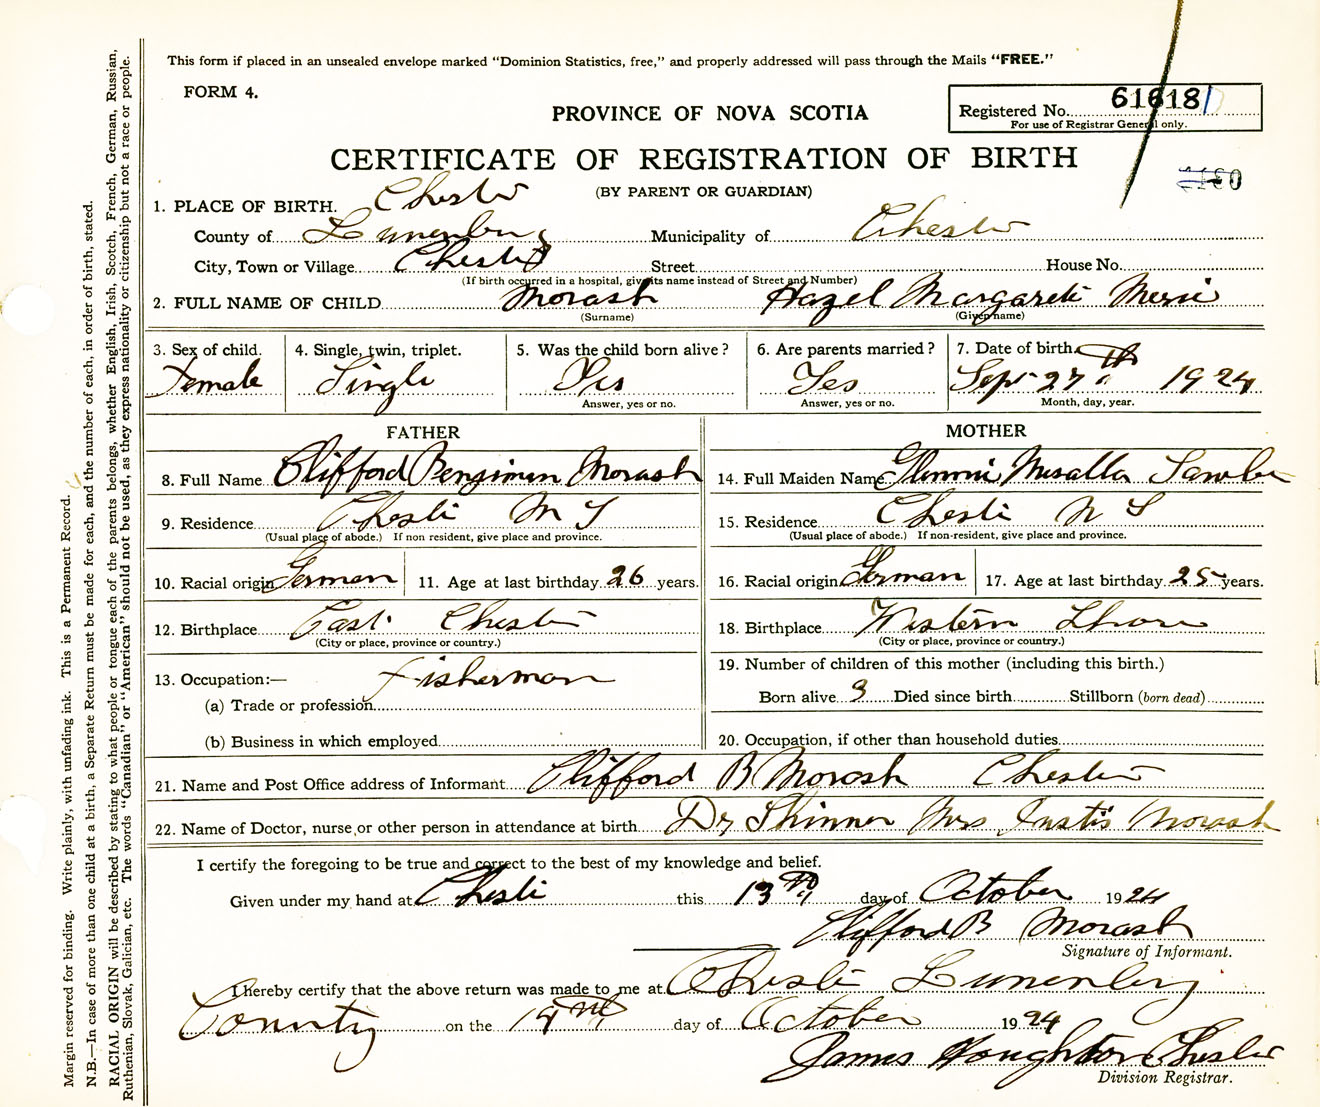 This form if placed in an unsealed envelope marked "Dominion Statistics, free," and properly addressed will pass through the Mails "FREE."
FORM 4.
PROVINCE OF NOVA SCOTIA
Registered No. 61618
For use of Registrar General only.
CERTIFICATE OF REGISTRATION OF BIRTH
(BY PARENT OR GUARDIAN)
1. PLACE OF BIRTH. Chester
County of Lunenburg Municipality of Chester
City, Town or Village Chester Street House No.
(If birth occurred in a hospital, give its name instead of Street and Number)
2. FULL NAME OF CHILD Morash Hazel Margarete
(Surname) (Given name)
3. Sex of child. 4. Single, twin, triplet. 5. Was the child born alive? 6. Are parents married? 7. Date of birth.
Female Single Yes Yes Sept 27th 1924
Answer, yes or no. Answer, yes or no. Month, day, year.
FATHER MOTHER
8. Full Name Clifford Benjimen Morash 14. Full Maiden Name
9. Residence Chester N S 15. Residence Chester N S
(Usual place of abode.) If non resident, give place and province. (Usual place of abode.) If non-resident, give place and province.
10. Racial origin German 11. Age at last birthday 26 years. 16. Racial origin German 17. Age at last birthday 25 years.
12. Birthplace East Chester 18. Birthplace Western Shore
(City or place, province or country.) (City or place, province or country.)
13. Occupation:— Fisherman 19. Number of children of this mother (including this birth.)
(a) Trade or profession Born alive 3 Died since birth Stillborn (born dead)
(b) Business in which employed 20. Occupation, if other than household duties
21. Name and Post Office address of Informant Clifford B Morash Chester
22. Name of Doctor, nurse, or other person in attendance at birth Dr Skinner Mrs Justis Morash
I certify the foregoing to be true and correct to the best of my knowledge and belief.
Given under my hand at Chester this 13th day of October 1924
Clifford B Morash
Signature of Informant.
I hereby certify that the above return was made to me at Chester Lunenburg
County on the day of October 1924
James Houghton Chester
Division Registrar.
Margin reserved for binding. Write plainly, with unfading ink. This is a Permanent Record.
N.B.—In case of more than one child at a birth, a Separate Return must be made for each, and the number of each, in order of birth, stated.
RACIAL ORIGIN will be described by stating to what people or tongue each of the parents belongs, whether English, Irish, Scotch, French, German, Russian,
Ruthenian, Slovak, Galician, etc. The words "Canadian" or "American" should not be used, as they express nationality or citizenship but not a race or people.